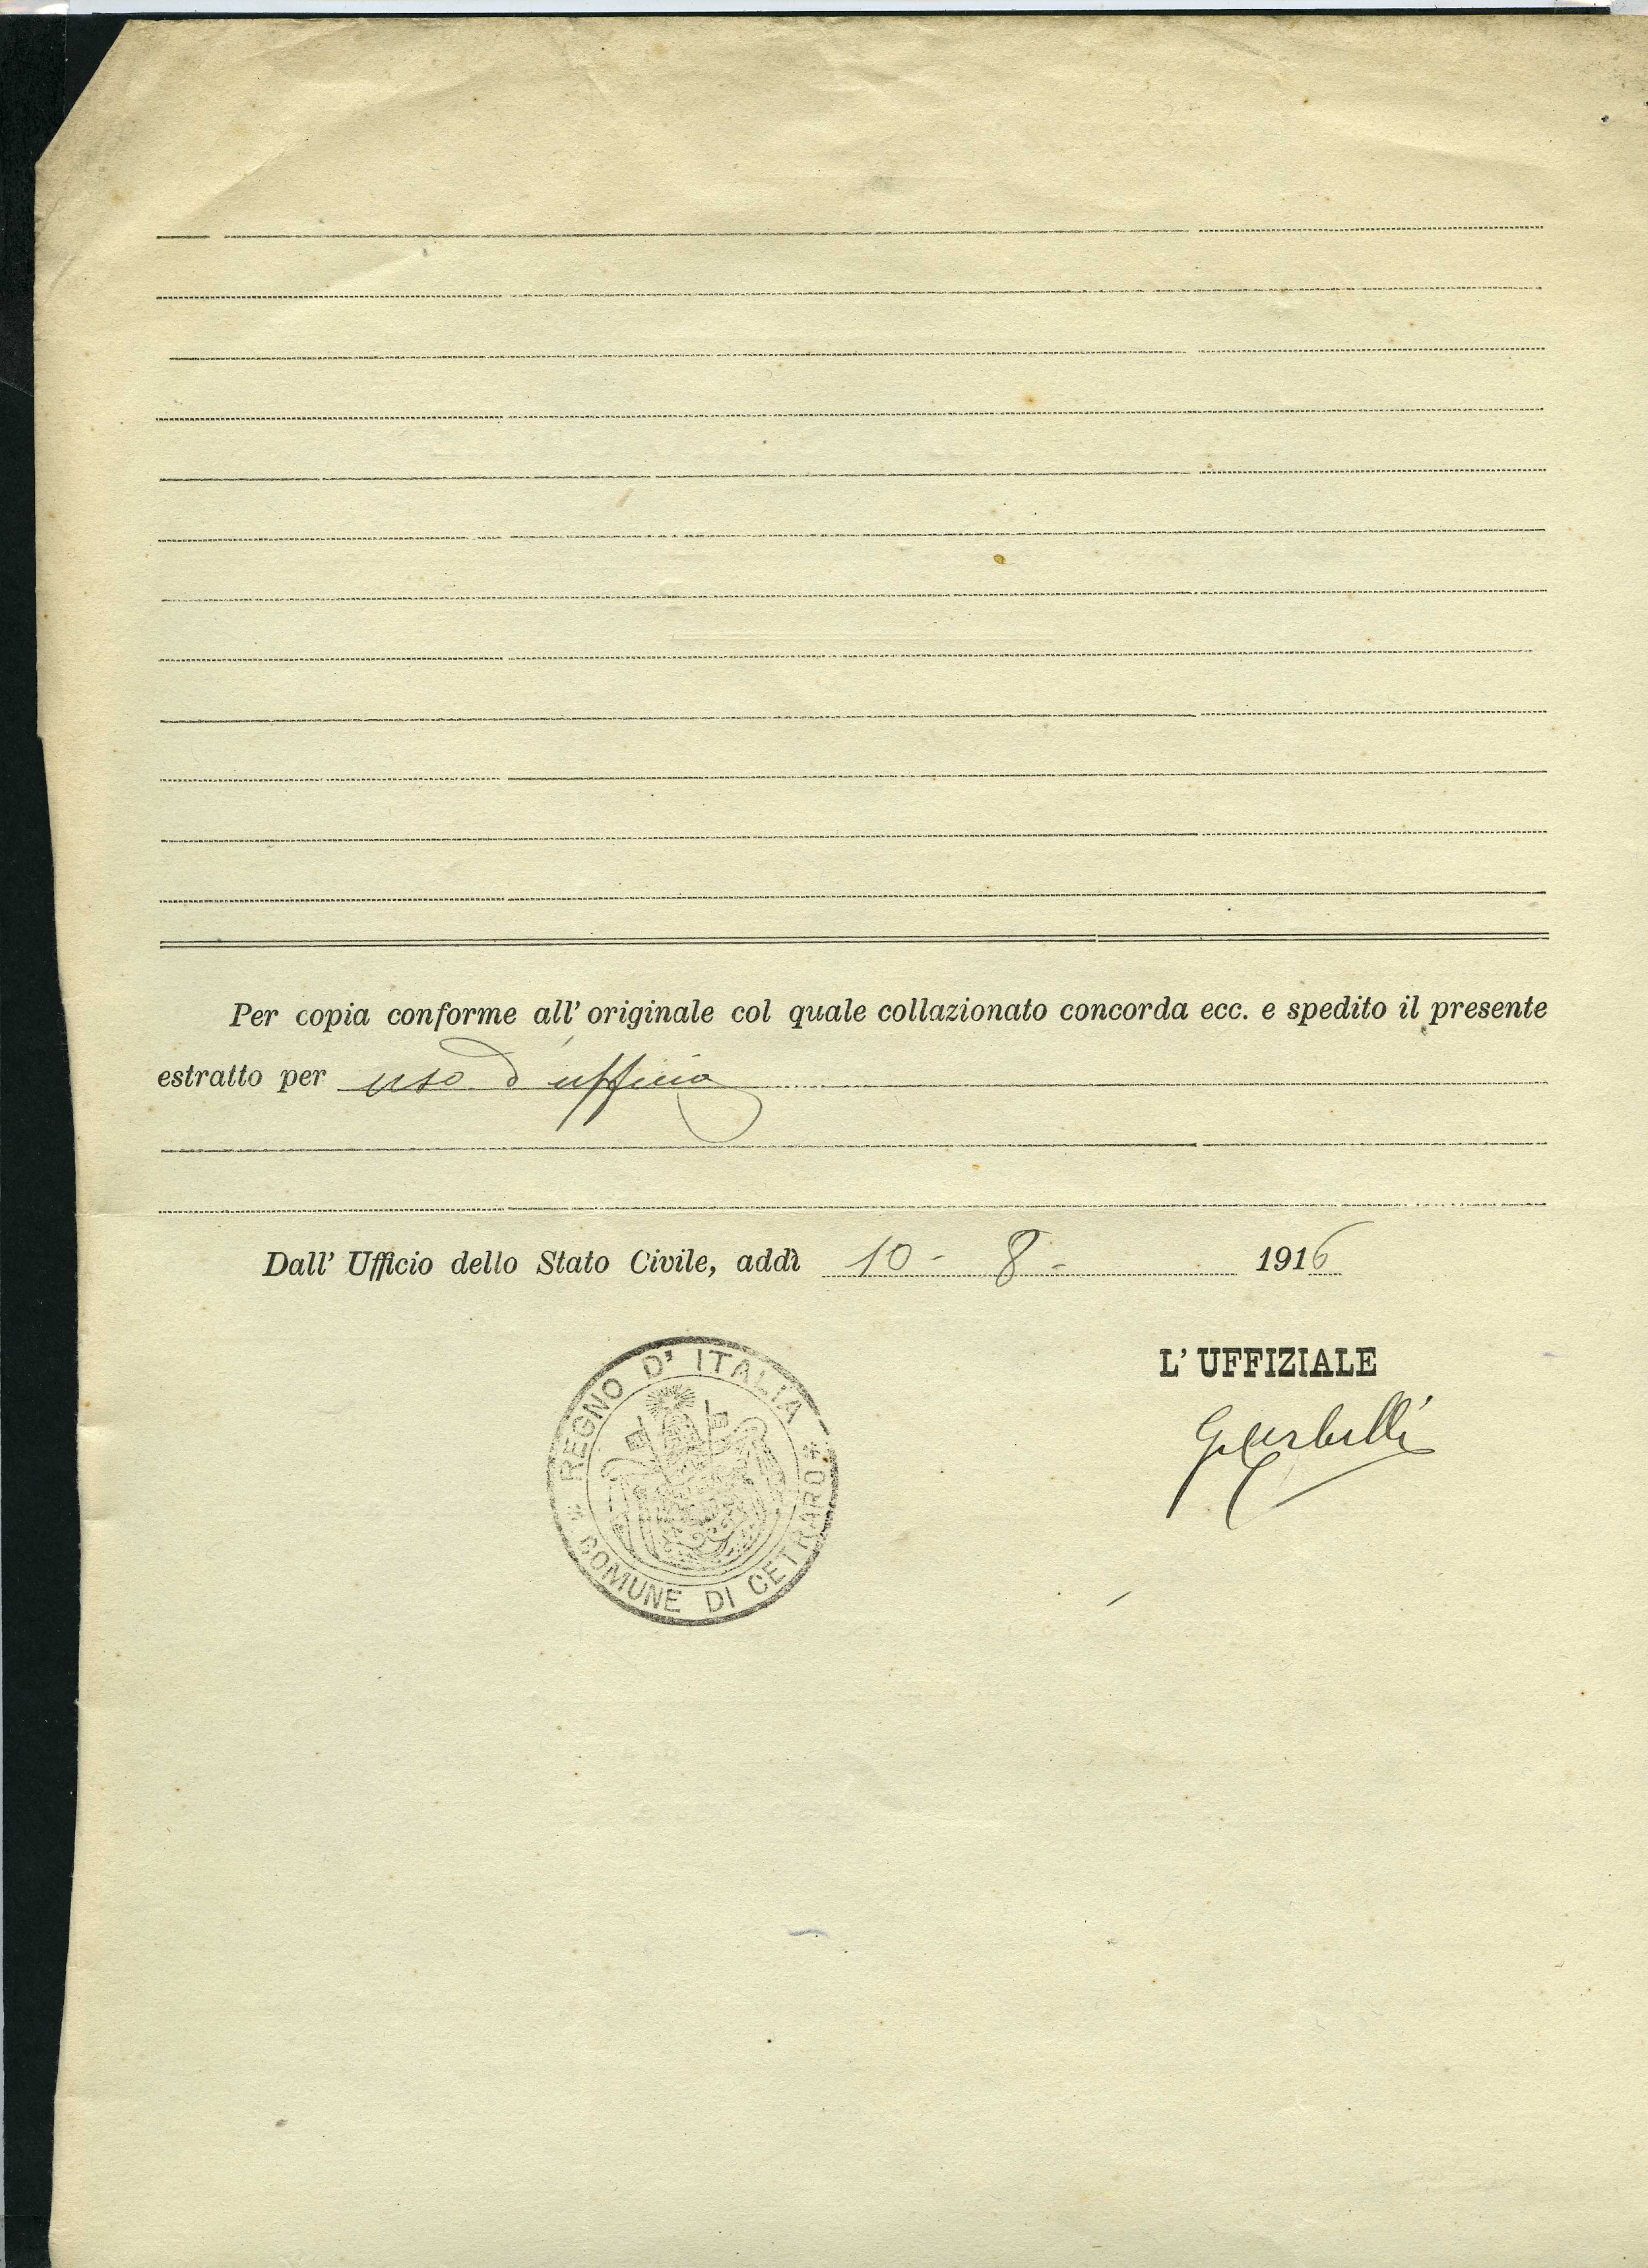 Per copia conforme all' originale col quale collazionato concorda ecc. e spedito il presente
estratto per uso d'ufficio
Dall' Ufficio dello Stato Civile, addì 10 - 8 - 1916
L' UFFIZIALE
* REGNO D' ITALIA *
COMUNE DI CETRARO